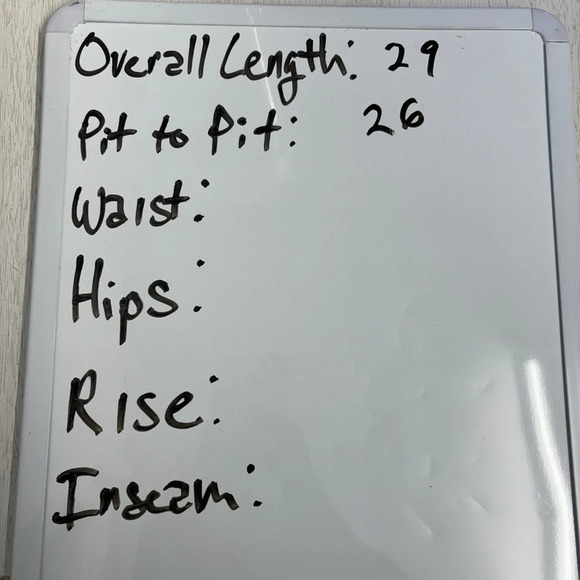 Overall Length: 29
Pit to Pit: 26
Waist:
Hips:
Rise:
Inseam: